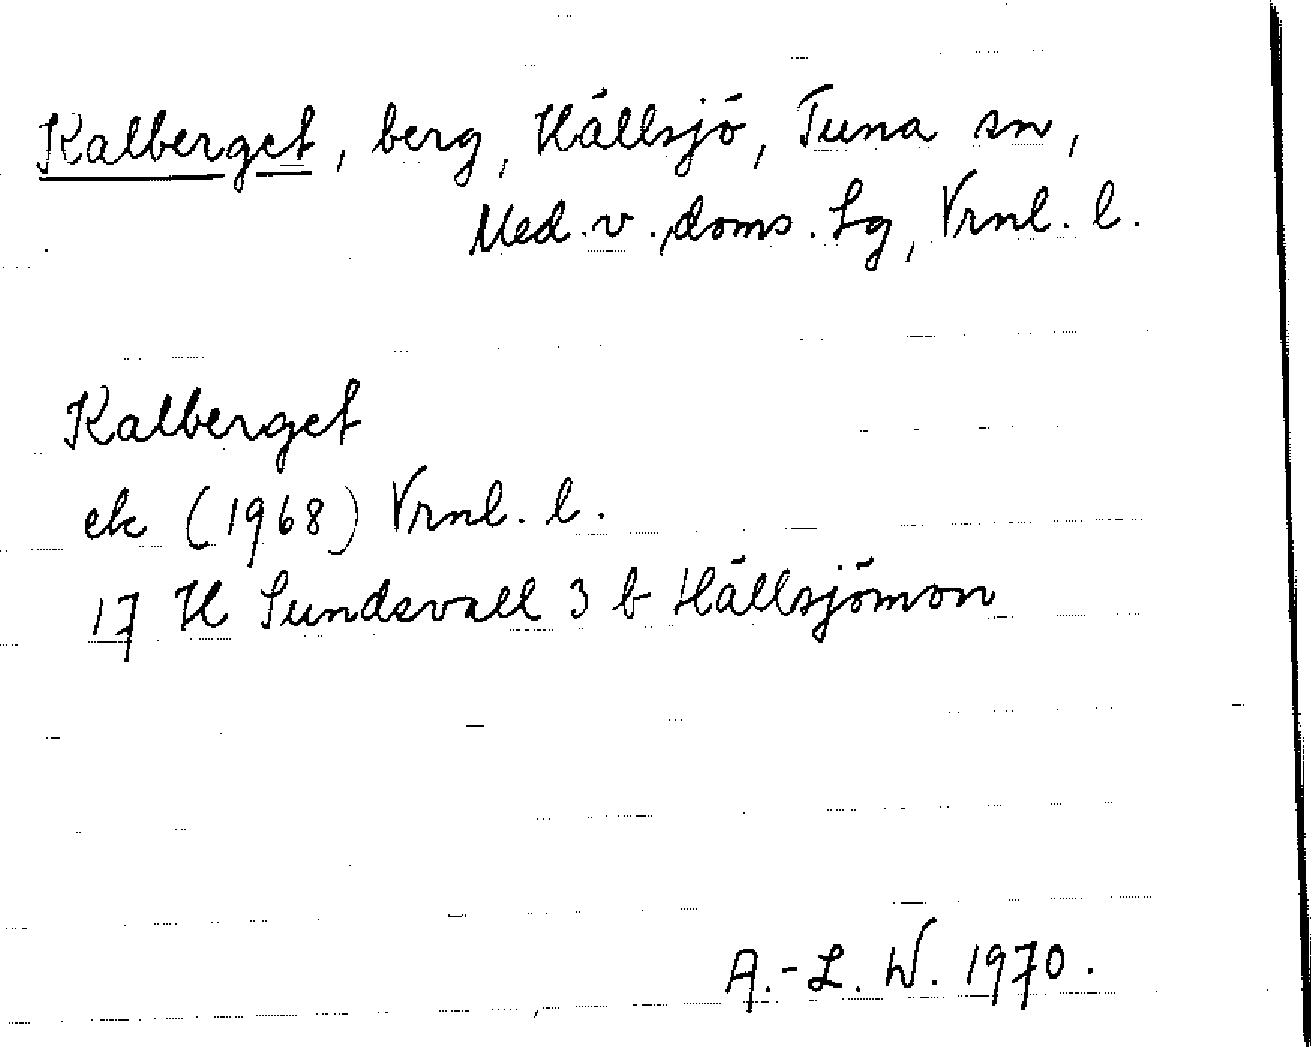 Kalberget, berg, Hällsjö, Tuna sn,
Med. v. doms. Lg, Vrnl. l.
Kalberget
ek (1968) Vrnl. l.
17 H Sundsvall 3 b Hällsjömon
A.-L. W. 1970.